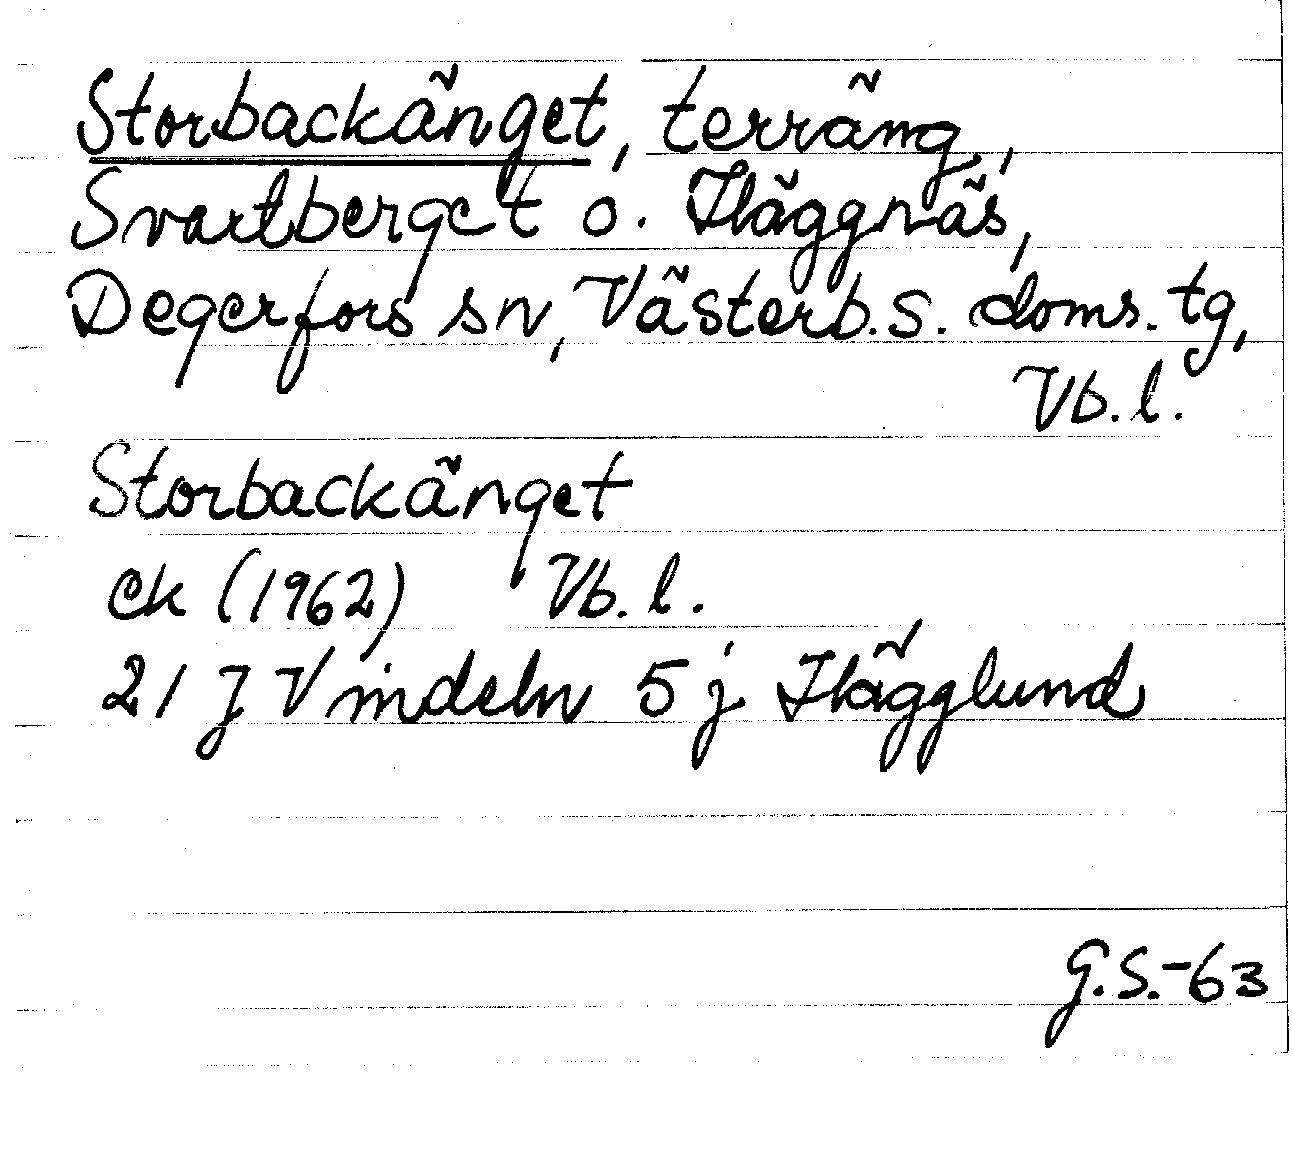 Storbackänget, terräng,
Svartberget o. Häggnäs,
Degerfors sn, Västerb. s. doms. tg,
Vb. l.
Storbackänget
ek (1962) Vb. l.
21 J Vindeln 5 j Hägglund
G.S.-63